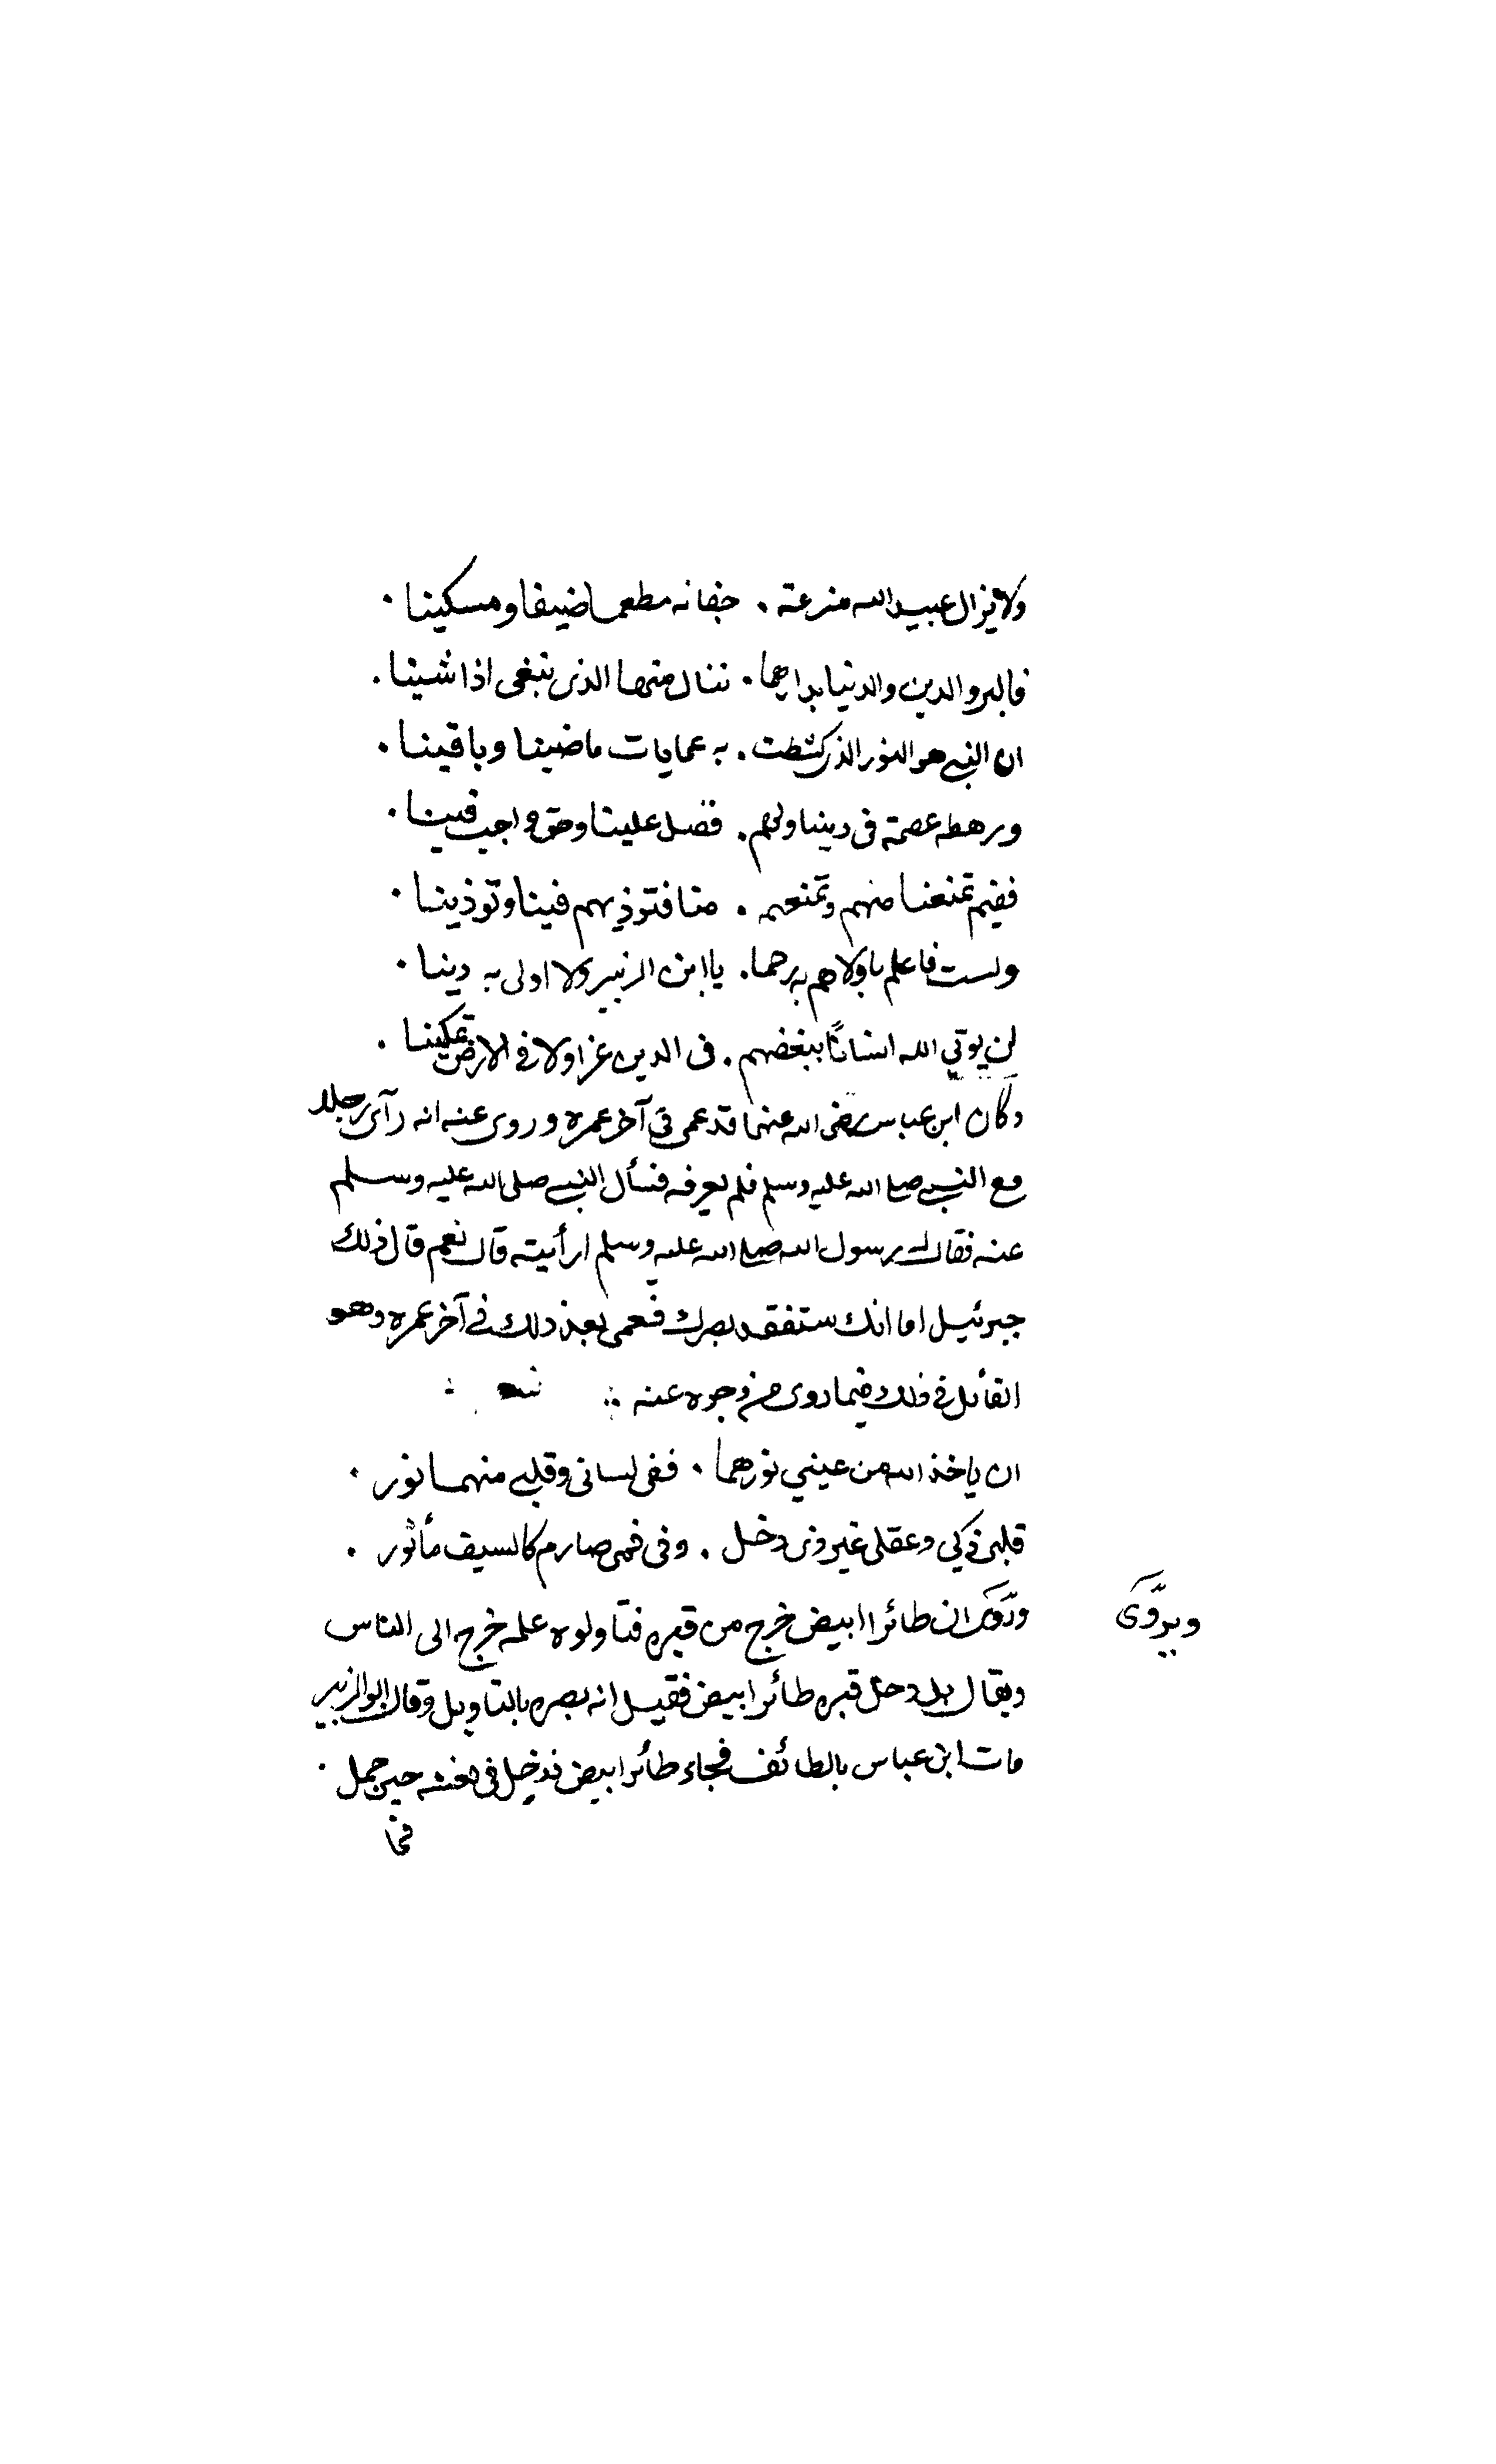 ولا يزال عبيد الله مترعة . جفانه مطعما ضيفا ومسكينا .
فالبر والدين والدنيا بدارهما . ننال منها الذى نبغى اذا شينا .
ان النبي هو النور الذى كشطت . به عمايات ماضينا وباقينا .
ورهطه عصمة فى ديننا ولهم . فضل علينا وحق واجب فينا .
ففيم تمنعنا منهم وتمنعهم . منا فتوذيهم فينا وتوذينا .
ولست فاعلم باولاهم به رحما . ياابن الزبير ولا اولى به دينا .
لن يوتي الله انسانًا ببغضهم . فى الدين عزا ولا فى الارض تمكينا .
وكان ابن عباس رضى الله عنهما قد عمى فى آخر عمره وروى عنه انه رآى رجلا
مع النبي صلى الله عليه وسلم فلم يعرفه فسأل النبي صلى الله عليه وسلم
عنه فقال له رسول الله صلى الله عليه وسلم ارأيته قال نعم قال ذلك
جبرئيل اما انك ستفقد بصرك فعمى بعد ذلك فى آخر عمره وهو
القائل فى ذلك فيما روى من وجوه عنه
ان ياخذ الله من عيني نورهما . ففى لسانى وقلبي منهما نور .
قلبى ذكي وعقلى غير ذى دخل . وفى فمى صارم كالسيف مأثور .
وروى ان طائرا ابيض خرج من قبره فتاولوه علمه خرج الى الناس
ويروى
ويقال بل دخل قبره طائر ابيض فقيل انه بصره بالتاويل وقال ابو الزبير
مات ابن عباس بالطائف فجاء طائر ابيض فدخل فى نعشه حين حمل .
فما